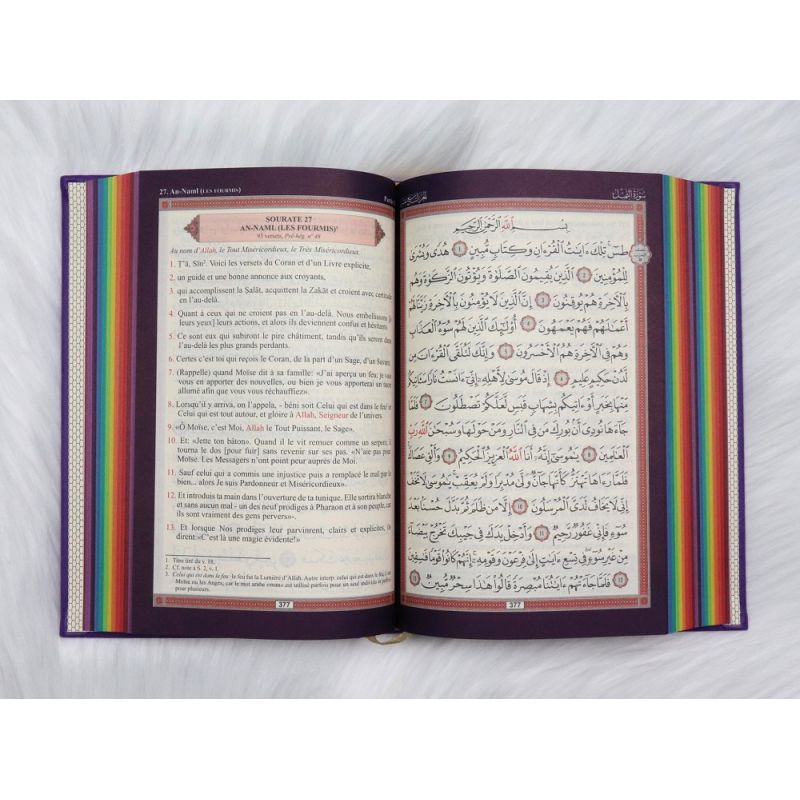 27. An-Naml (LES FOURMIS)
SOURATE 27
AN-NAML (LES FOURMIS)¹
93 versets, Pré-hég. n° 48
Au nom d'Allah, le Tout Miséricordieux, le Très Miséricordieux.
1. Ṭ'ā, Sīn². Voici les versets du Coran et d'un Livre explicite,
2. un guide et une bonne annonce aux croyants,
3. qui accomplissent la Ṣalāt, acquittent la Zakāt et croient avec certitude
en l'au-delà.
4. Quant à ceux qui ne croient pas en l'au-delà, Nous embellissons [à
leurs yeux] leurs actions, et alors ils deviennent confus et hésitants.
5. Ce sont eux qui subiront le pire châtiment, tandis qu'ils seront dans
l'au-delà les plus grands perdants.
6. Certes c'est toi qui reçois le Coran, de la part d'un Sage, d'un Savant.
7. (Rappelle) quand Moïse dit à sa famille: «J'ai aperçu un feu; je
vous en apporter des nouvelles, ou bien je vous apporterai un tison
allumé afin que vous vous réchauffiez».
8. Lorsqu'il y arriva, on l'appela, - béni soit Celui qui est dans le feu et
Celui qui est tout autour, et gloire à Allah, Seigneur de l'univers.
9. «Ô Moïse, c'est Moi, Allah le Tout Puissant, le Sage».
10. Et: «Jette ton bâton». Quand il le vit remuer comme un serpent, il
tourna le dos [pour fuir] sans revenir sur ses pas. «N'aie pas peur
Moïse. Les Messagers n'ont point peur auprès de Moi.
11. Sauf celui qui a commis une injustice puis a remplacé le mal par le
bien... alors Je suis Pardonneur et Miséricordieux».
12. Et introduis ta main dans l'ouverture de ta tunique. Elle sortira blanche
et sans aucun mal - un des neuf prodiges à Pharaon et à son peuple, car
ils sont vraiment des gens pervers»-.
13. Et lorsque Nos prodiges leur parvinrent, clairs et explicites, ils
dirent:«C'est là une magie évidente!»
1. Titre tiré du v. 18.
2. Cf. note à S. 2, v. 1.
3. Celui qui est dans le feu: le feu fut la Lumière d'Allah. Autre interp. celui qui est dans le feu:
Moïse ou les Anges, car le mot arabe
pour plusieurs.
377
سورة النمل
بِسْمِ اللَّهِ الرَّحْمَٰنِ الرَّحِيمِ
طسٓ ۚ تِلْكَ ءَايَٰتُ الْقُرْءَانِ وَكِتَابٍ مُّبِينٍ ١ هُدًى وَبُشْرَىٰ
لِلْمُؤْمِنِينَ ٢ الَّذِينَ يُقِيمُونَ الصَّلَوٰةَ وَيُؤْتُونَ الزَّكَوٰةَ وَهُم
بِالْءَاخِرَةِ هُمْ يُوقِنُونَ ٣ إِنَّ الَّذِينَ لَا يُؤْمِنُونَ بِالْءَاخِرَةِ زَيَّنَّا لَهُمْ
أَعْمَٰلَهُمْ فَهُمْ يَعْمَهُونَ ٤ أُو۟لَٰٓئِكَ الَّذِينَ لَهُمْ سُوٓءُ الْعَذَابِ
وَهُمْ فِي الْءَاخِرَةِ هُمُ الْأَخْسَرُونَ ٥ وَإِنَّكَ لَتُلَقَّى الْقُرْءَانَ مِن
لَّدُنْ حَكِيمٍ عَلِيمٍ ٦ إِذْ قَالَ مُوسَىٰ لِأَهْلِهِۦٓ إِنِّيٓ ءَانَسْتُ نَارًا سَـَٔاتِيكُم
مِّنْهَا بِخَبَرٍ أَوْ ءَاتِيكُم بِشِهَابٍ قَبَسٍ لَّعَلَّكُمْ تَصْطَلُونَ ٧ فَلَمَّا
جَآءَهَا نُودِيَ أَنۢ بُورِكَ مَن فِي النَّارِ وَمَنْ حَوْلَهَا وَسُبْحَٰنَ اللَّهِ رَبِّ
الْعَٰلَمِينَ ٨ يَٰمُوسَىٰٓ إِنَّهُۥٓ أَنَا اللَّهُ الْعَزِيزُ الْحَكِيمُ ٩ وَأَلْقِ عَصَاكَ ۚ
فَلَمَّا رَءَاهَا تَهْتَزُّ كَأَنَّهَا جَآنٌّ وَلَّىٰ مُدْبِرًا وَلَمْ يُعَقِّبْ ۚ يَٰمُوسَىٰ لَا تَخَفْ
إِنِّي لَا يَخَافُ لَدَيَّ الْمُرْسَلُونَ ١٠ إِلَّا مَن ظَلَمَ ثُمَّ بَدَّلَ حُسْنًۢا بَعْدَ
سُوٓءٍ فَإِنِّي غَفُورٌ رَّحِيمٌ ١١ وَأَدْخِلْ يَدَكَ فِي جَيْبِكَ تَخْرُجْ بَيْضَآءَ
مِنْ غَيْرِ سُوٓءٍ ۖ فِي تِسْعِ ءَايَٰتٍ إِلَىٰ فِرْعَوْنَ وَقَوْمِهِۦٓ ۚ إِنَّهُمْ كَانُوا۟ قَوْمًا فَٰسِقِينَ
١٢ فَلَمَّا جَآءَتْهُمْ ءَايَٰتُنَا مُبْصِرَةً قَالُوا۟ هَٰذَا سِحْرٌ مُّبِينٌ ١٣
377